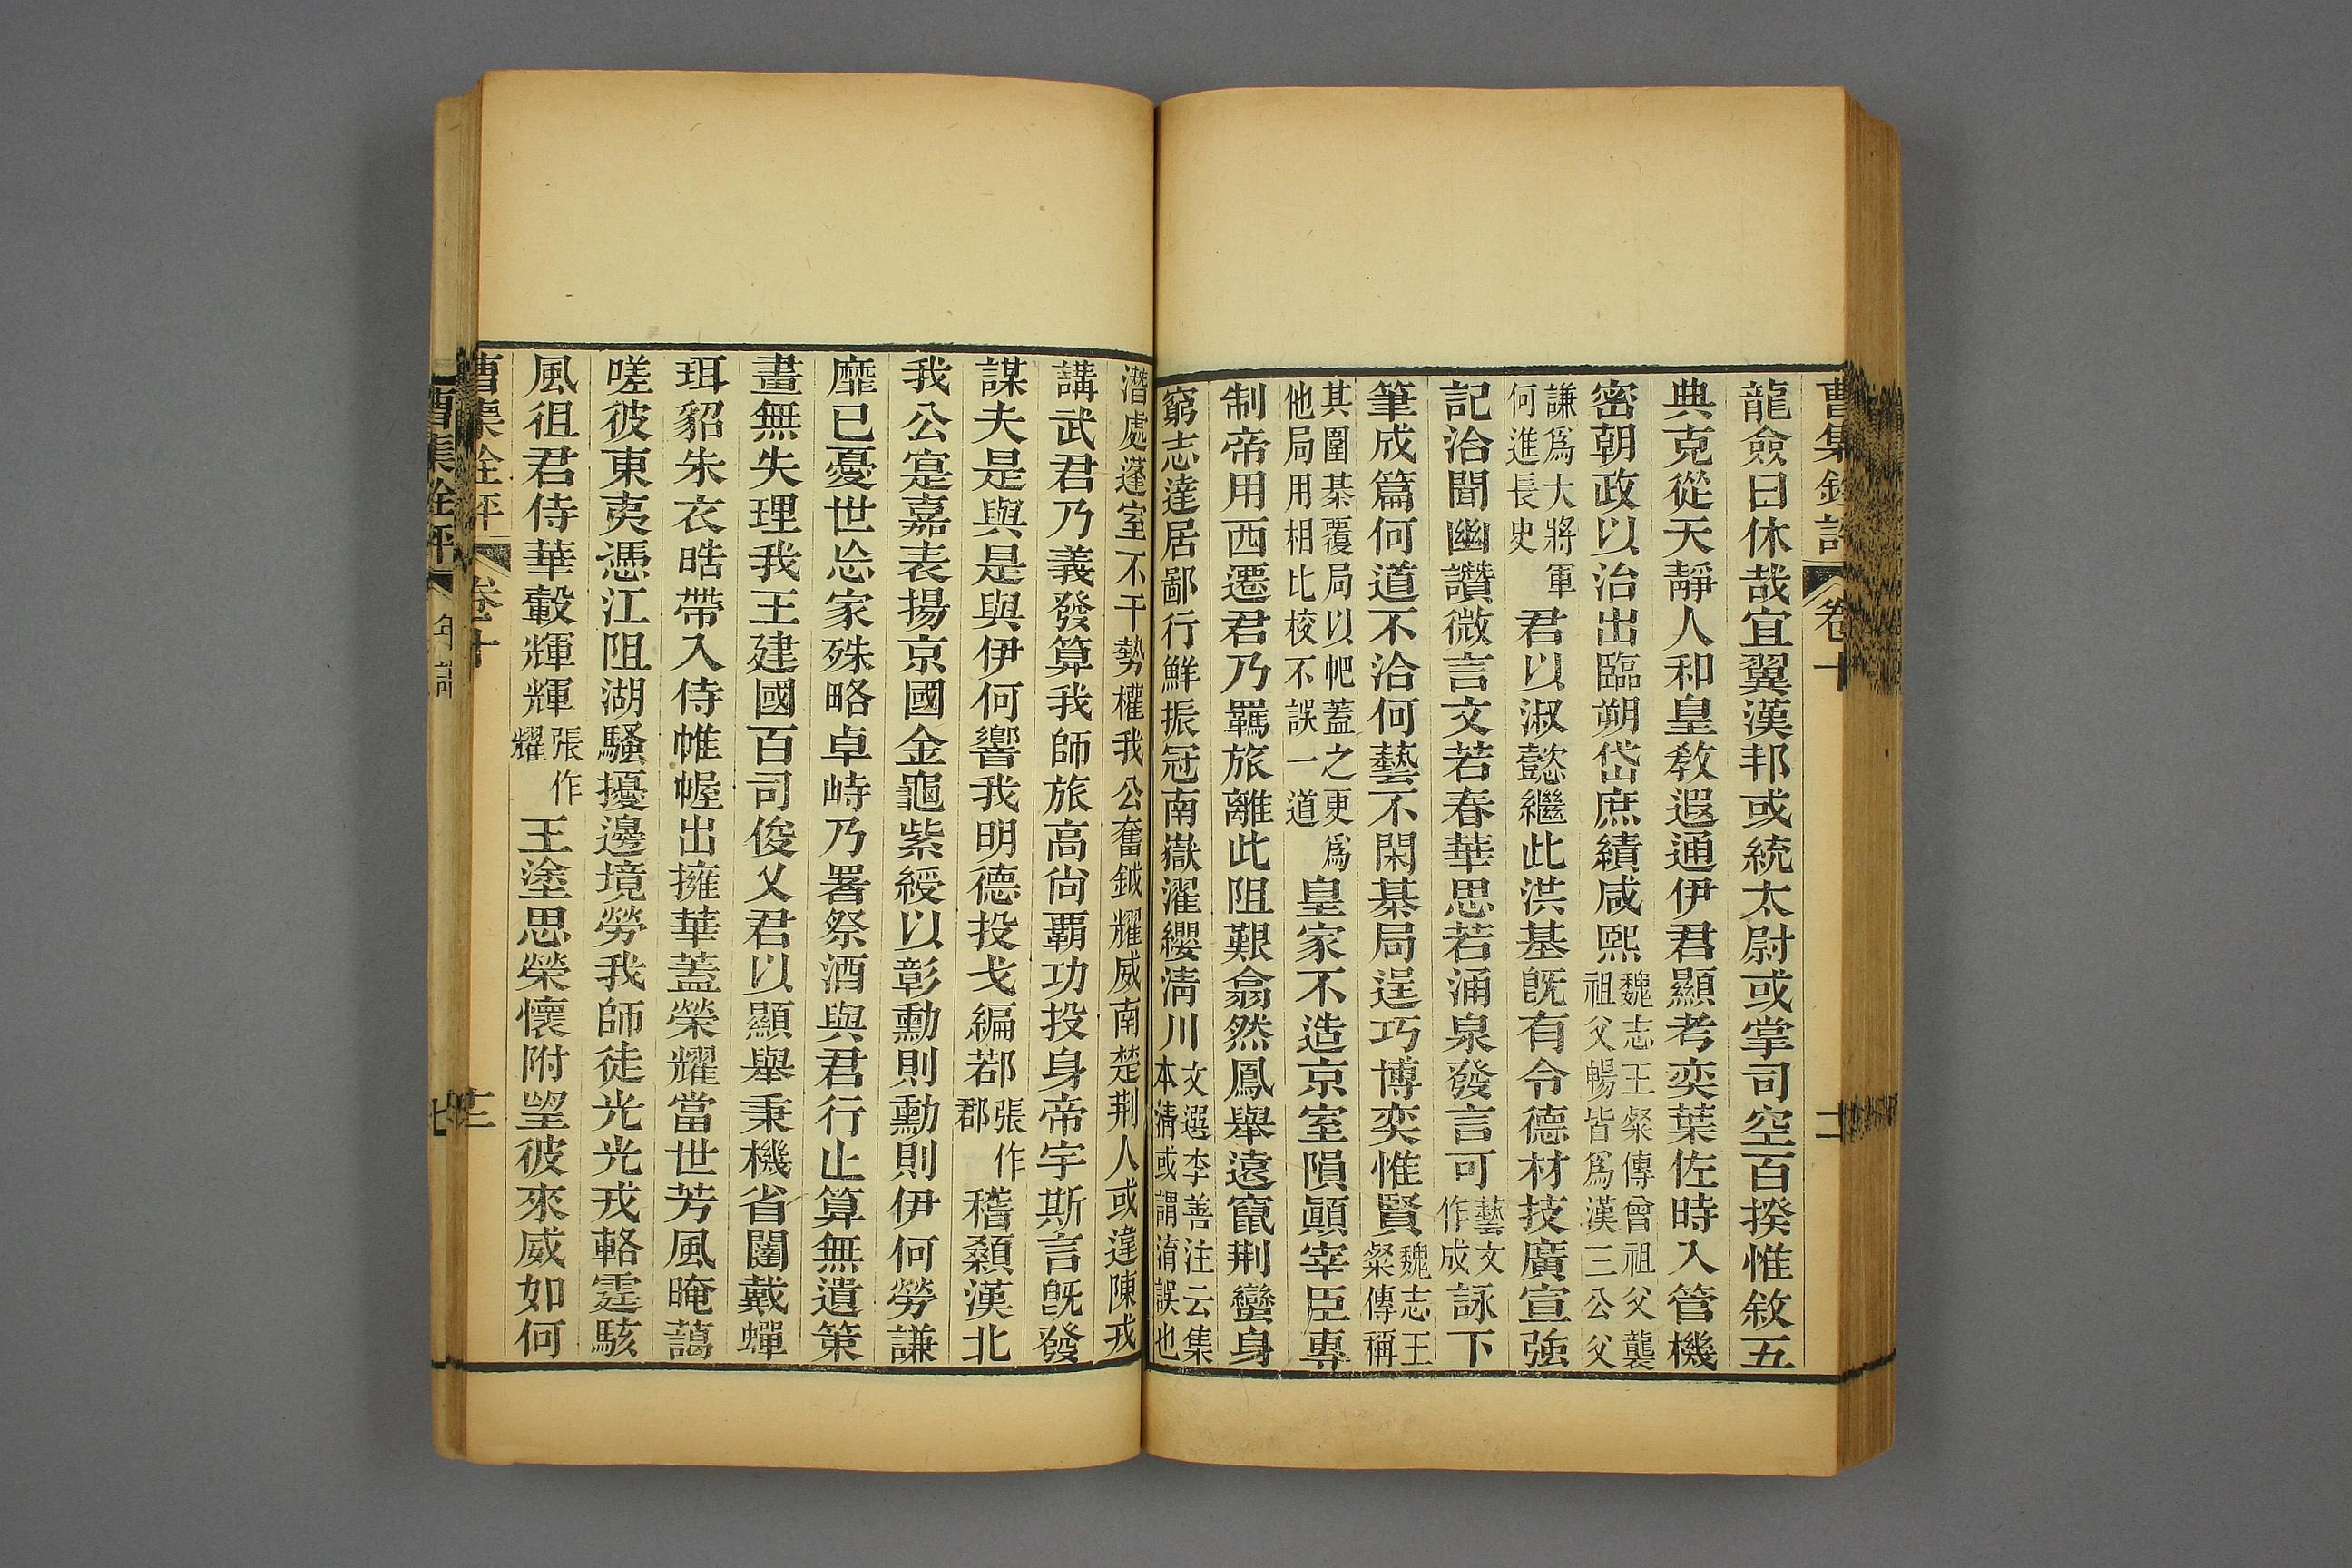 曹集銓評 卷十 十一
龍僉曰休哉宜翼漢邦或統太尉或掌司空百揆惟敘五
典克從天靜人和皇敎遐通伊君顯考奕葉佐時入管機
密朝政以治出臨朔岱庶績咸熙魏志王粲傳曾祖父襲祖父暢皆爲漢三公父
謙爲大將軍何進長史君以淑懿繼此洪基旣有令德材技廣宣強
記洽聞幽讚微言文若春華思若涌泉發言可藝文作成詠下
筆成篇何道不洽何藝不閑棊局逞巧博奕惟賢魏志王粲傳稱
其圍棊覆局以帊蓋之更爲他局用相比校不誤一道皇家不造京室隕顚宰臣專
制帝用西遷君乃羈旅離此阻艱翕然鳳舉遠竄荆蠻身
窮志達居鄙行鮮振冠南嶽濯纓淸川文選李善注云集本淸或謂淯誤也
潛處蓬室不干勢權我公奮鉞耀威南楚荆人或違陳戎
講武君乃義發算我師旅高尙覇功投身帝宇斯言旣發
謀夫是與是與伊何響我明德投戈編鄀張作郡稽顙漢北
我公寔嘉表揚京國金龜紫綬以彰勳則勳則伊何勞謙
靡已憂世忘家殊略卓峙乃署祭酒與君行止算無遺策
畫無失理我王建國百司俊乂君以顯舉秉機省闥戴蟬
珥貂朱衣皓帶入侍帷幄出擁華蓋榮耀當世芳風晻藹
嗟彼東夷憑江阻湖騷擾邊境勞我師徒光光戎輅霆駭
風徂君侍華轂輝輝張作耀王塗思榮懷附望彼來威如何
曹集銓評 卷十
曹集銓評 年譜